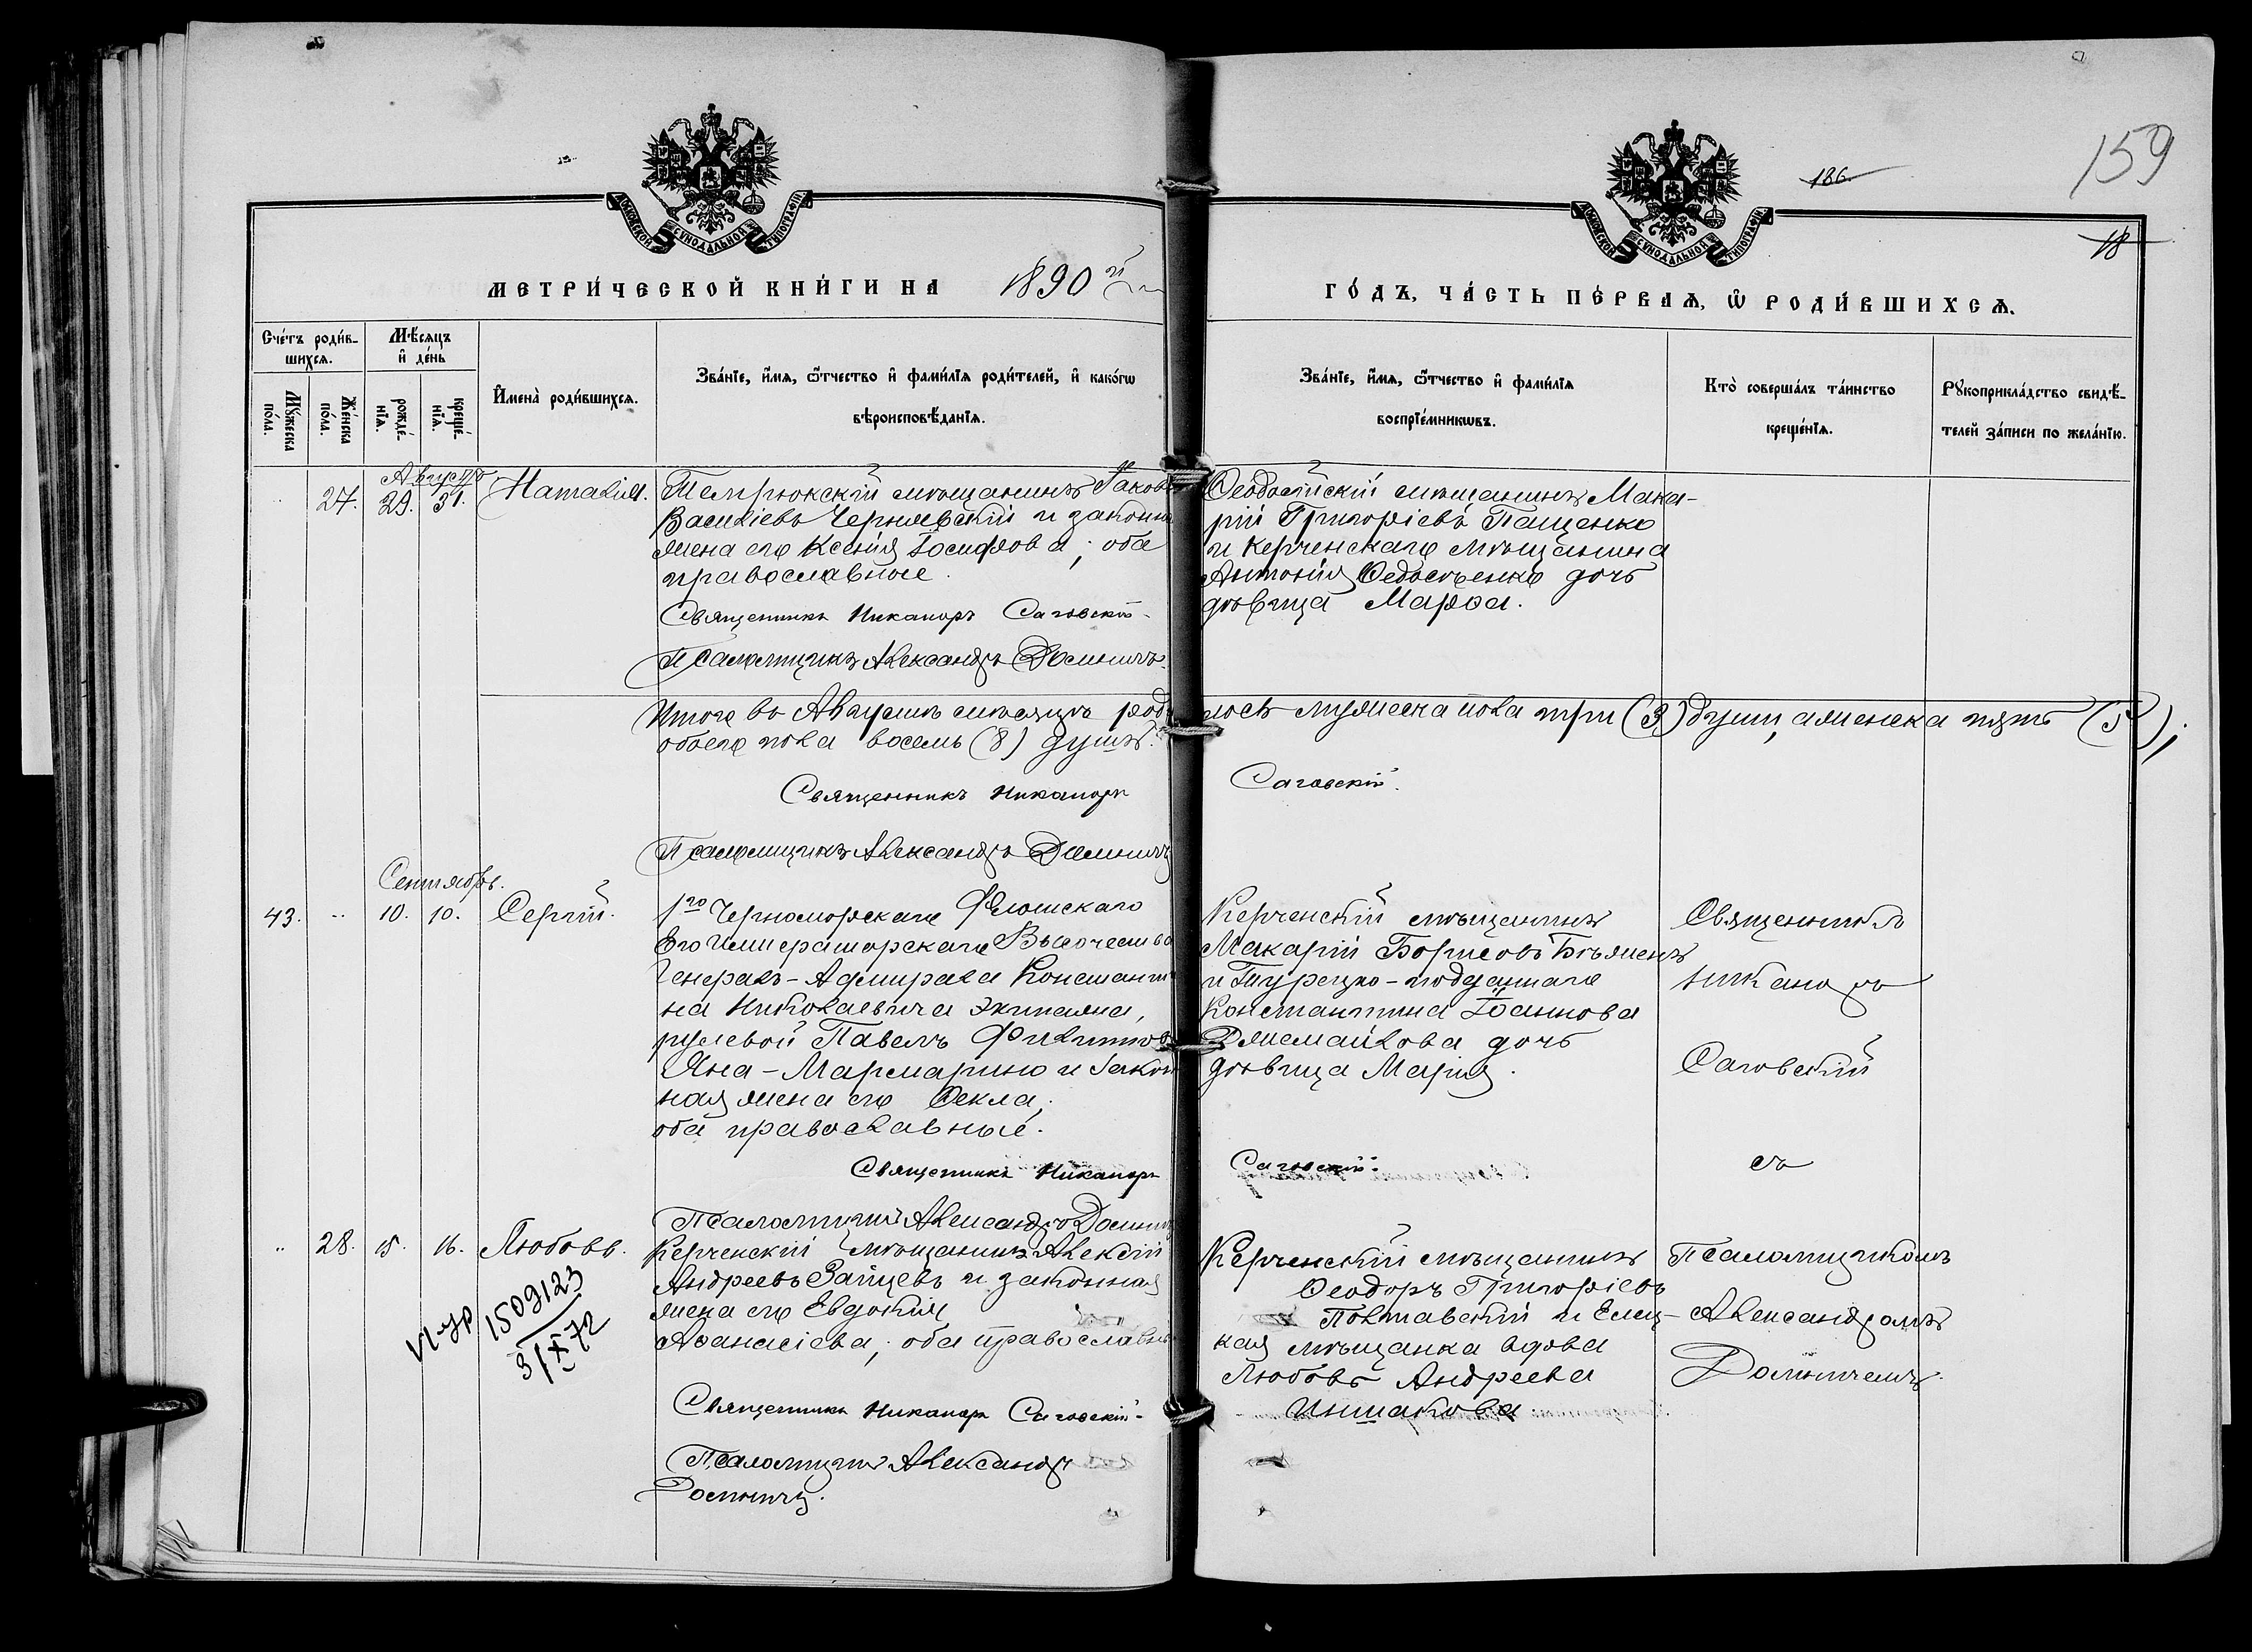 186.
159
18
МОСКОВСКОЙ СѴНОДАЛЬНОЙ ТИПОГРАФІИ
МОСКОВСКОЙ СѴНОДАЛЬНОЙ ТИПОГРАФІИ
МЕТРИ́ЧЕСКОЙ КНИ́ГИ НА 1890й
ГО́ДЪ, ЧА́СТЬ ПЕ́РВАѦ, Ѡ҆ РОДИ́ВШИХСѦ.
Сче́тъ роди́в-
шихсѧ.
Мꙋ́жеска
по́ла.
Же́нска
по́ла.
Мѣ́сѧцъ
и҆ де́нь
рожде́-
нїѧ.
креще́-
нїѧ.
И҆мена̀ роди́вшихсѧ.
Зва́нїе, и҆́мѧ, ѻ҆́тчество и҆ фами́лїѧ роди́телей, и҆ како́гѡ
вѣроисповѣ́данїѧ.
Зва́нїе, и҆́мѧ, ѻ҆́тчество и҆ фами́лїѧ
воспрїе́мникѡвъ.
Кто̀ соверша́лъ та́инство
креще́нїѧ.
Рꙋкоприкла́дство свидѣ́-
телей за́писи по жела́нїю.
Августъ
27. 29. 31. Наталія.
Темрюкскій мѣщанинъ Яковъ
Василіевъ Чернявскій и законна
жена его Ксенія Іосифова; оба
православные.
Священникъ Никаноръ Саговскій
Псаломщикъ Александръ
Ѳеодосійскій мѣщанинъ Мака-
рій Григоріевъ Пащенко
и Керченскаго мѣщанина
Антонія Ѳедосѣенко дочь
дѣвица Марѳа.
Итого въ Августѣ мѣсяцѣ роди
лось мужеска пола три (3) души, а женска пять (5),
обоего пола восемь (8) душъ.
Священникъ Никаноръ
Саговскій.
Псаломщикъ Александръ
Сентябрь.
43. " 10. 10. Сергій.
1го Черноморскаго Флотскаго
Его Императорскаго Высочества
Генералъ-Адмирала Константи
на Николаевича экипажа,
рулевой Павелъ Филиппов
Яна-Мармарино и Закон
ная жена его Ѳекла;
оба православные.
Священникъ Никаноръ
Саговскій.
Керченскій мѣщанинъ
Макарій Борисовъ
и Турецко-подданнаго
Константина Іоаннова
дочь
дѣвица Марія.
Священникъ
Никаноръ
Саговскій
съ
Псаломщикъ Александръ
" 28. 15. 16. Любовь.
Керченскій мѣщанинъ Алексій
Андреевъ Зайцевъ и законная
жена его Евдокія
Аѳанасіева; оба православн
Священникъ Никаноръ Саговскій
Псаломщикъ Александръ
Керченскій мѣщанинъ
Ѳеодоръ Григоріевъ
Полтавскій и Елец-
кая мѣщанка вдова
Любовь Андреева
Иншакова
Псаломщикомъ
Александромъ
1509123
3/X 72